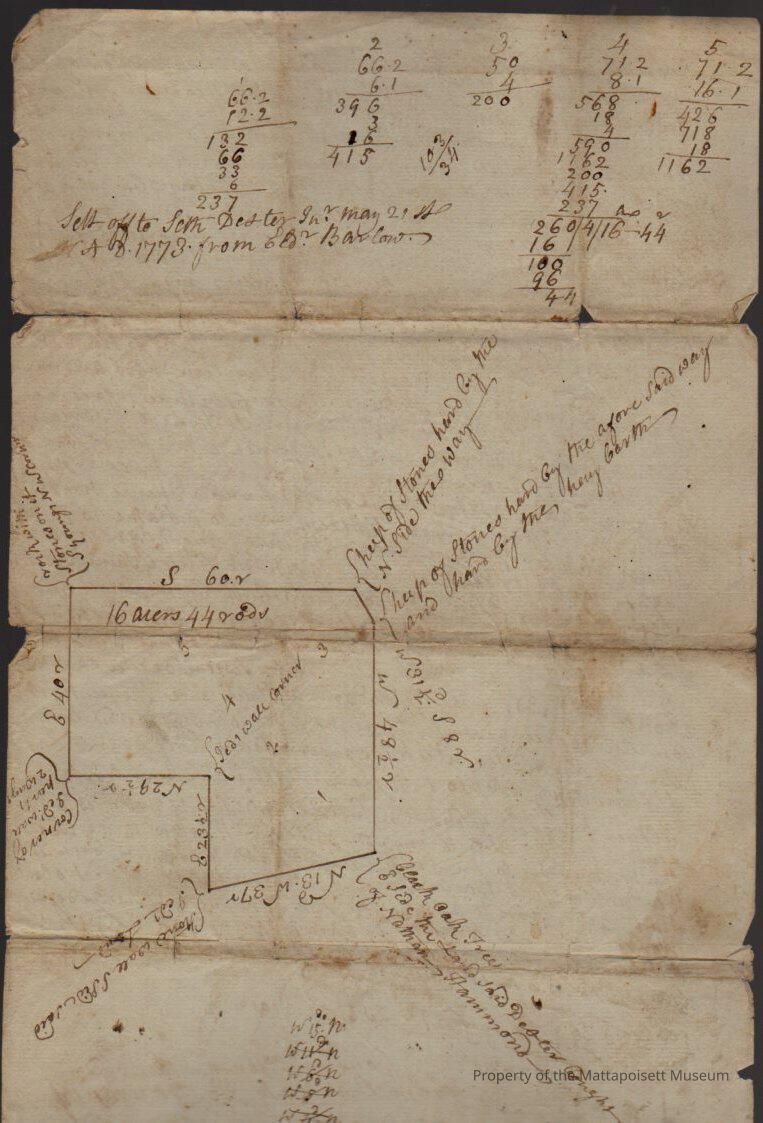 66.2
12.2
132
66
33
6
237
2
66.2
6.1
396
3
16
415
3
50
4
200
4
71.2
8.1
568
18
4
590
1162
200
415
237
260/4/16-44
16
100
96
44
5
71.2
16.1
426
718
18
1162
Sett off to Seth Dexter Junr may 21st
A D. 1773. from Barlow.
heep of Stones hard by the
N Side the way
heep of Stones hard by the afore Said way
and hard by the hey barth
Stones on it
S 60 r
16 acers 44 rods
5
3
4
2
1
wall Corner
8 40 r
W 48½ r
W 31½ S 8 r
N 29½ r
N 13 W 37 r
Corner of
black oak Tree
E Side the Land Said Dexter bought
of Nathan Hammond
Stone wall
W 15 N
Property of the Mattapoisett Museum